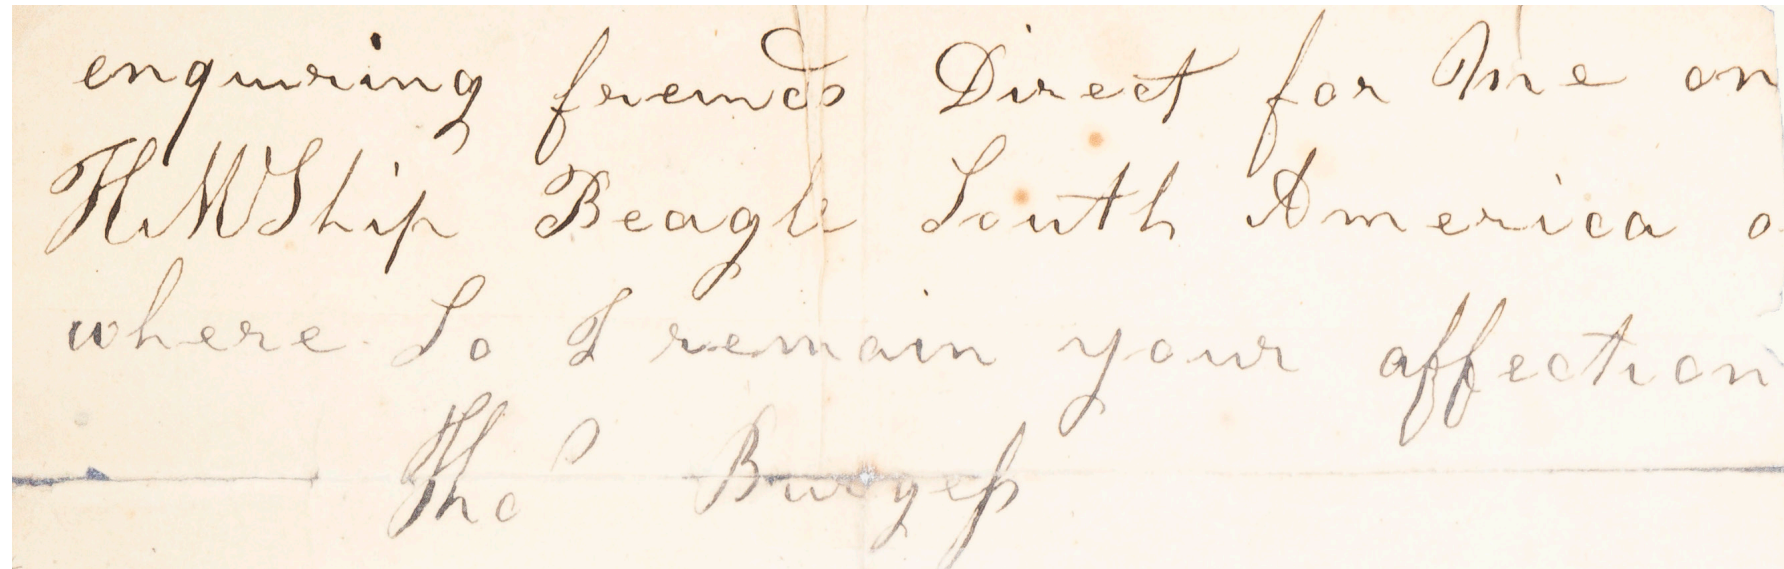 enquiring freinds Direct for Me on
HMShip Beagle South America o
where So I remain your affection
Thos Burgess